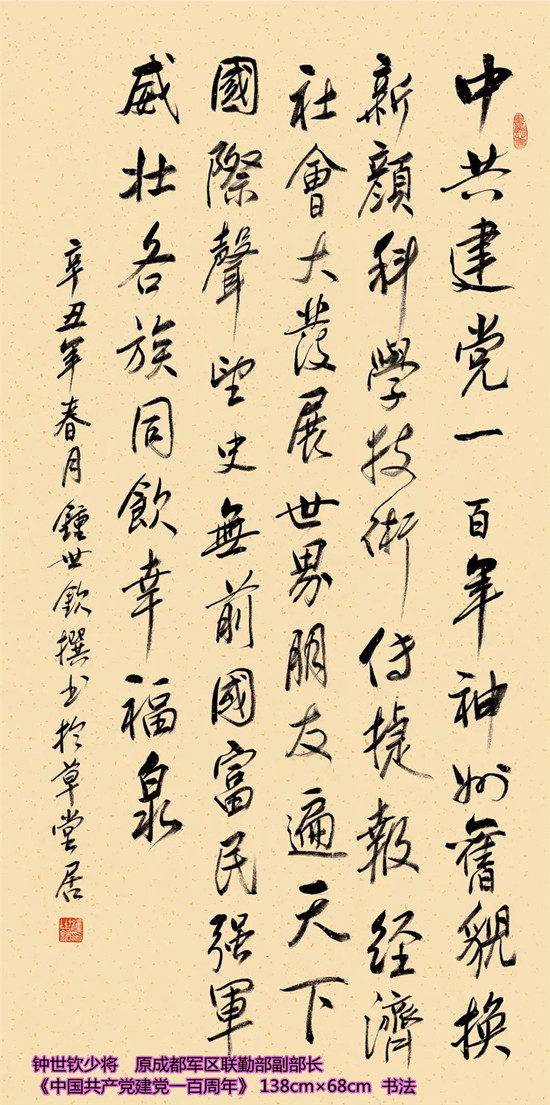 中共建党一百年神州舊貌換
新顏科學技術传捷報經濟
社會大發展世界朋友遍天下
國際聲望史無前國富民强軍
威壮各族同飲幸福泉
辛丑年春月鍾世欽撰书於草堂居
钟世钦少将 原成都军区联勤部副部长
《中国共产党建党一百周年》 138cm×68cm 书法